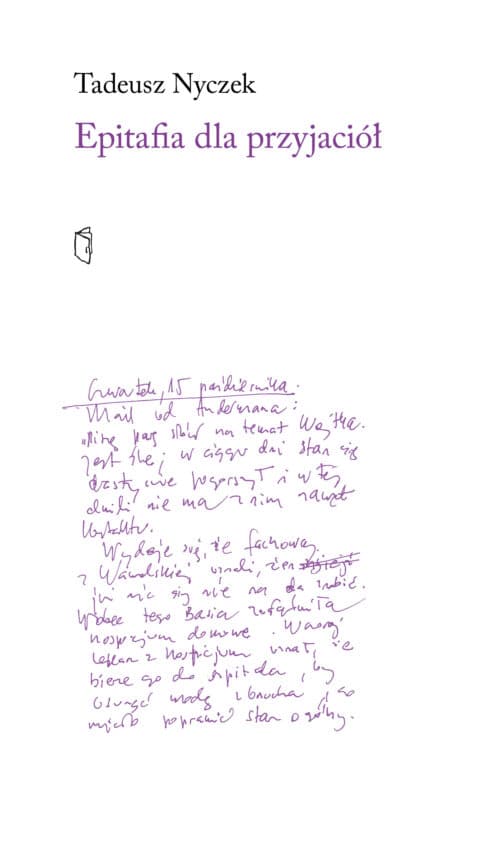 Tadeusz Nyczek
Epitafia dla przyjaciół
Czwartek, 15 października.
Mail od Andermana:
"Mirę parę słów na temat Wojtka.
Jest źle; w ciągu dni stan się
drastycznie pogorszył i w tej
chwili nie ma z nim nawet
kontaktu.
Wydaje się, że fachowcy
z Wawelskiej uznali, że
już nic się nie da zrobić.
Wobec tego Basia załatwiła
hospicjum domowe. Wczoraj
lekarz z hospicjum uznał, że
bierze go do szpitala, by
usunąć wodę z brzucha i co
nieco poprawić stan ogólny.